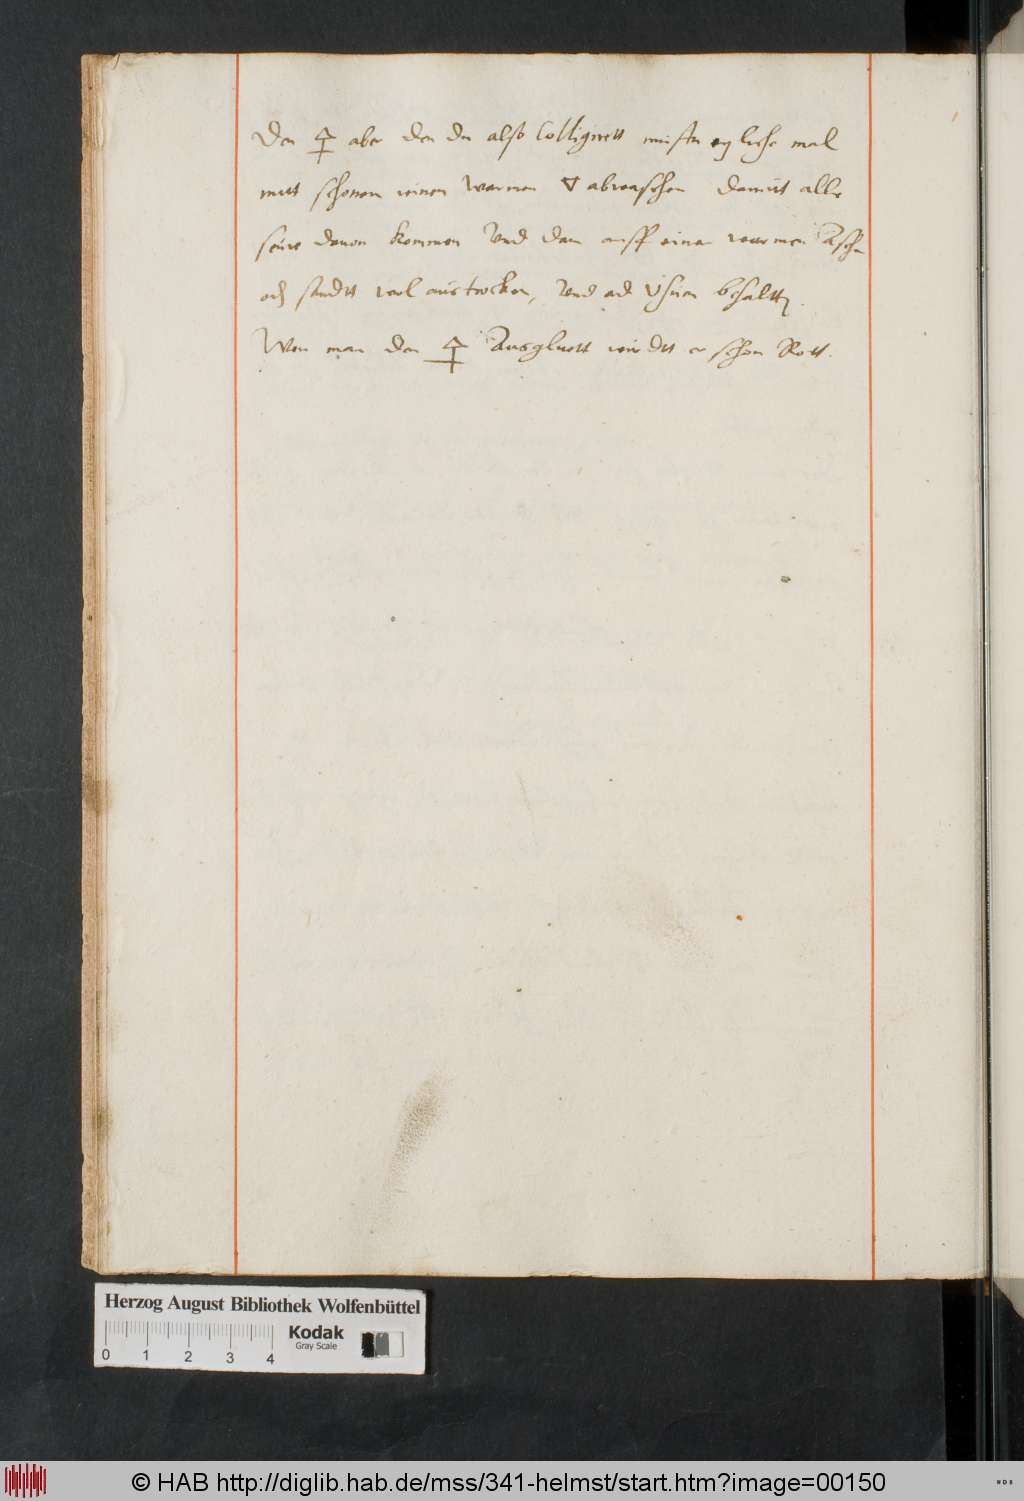 Den 🜍 aber den du also Colligirett mustu etzliche mal
mitt schonen reinen warmen 🜄 abwaschen damitt alle
seure dauon kommen Vnd dan auff einer warmen Aschen
od sandtt wol austrocken, Vnd ad Vsum behaltten.
Wen man den 🜍 Ausgluett wirdtt er schon Rott.
Herzog August Bibliothek Wolfenbüttel
0 1 2 3 4
Kodak
Gray Scale
© HAB http://diglib.hab.de/mss/341-helmst/start.htm?image=00150